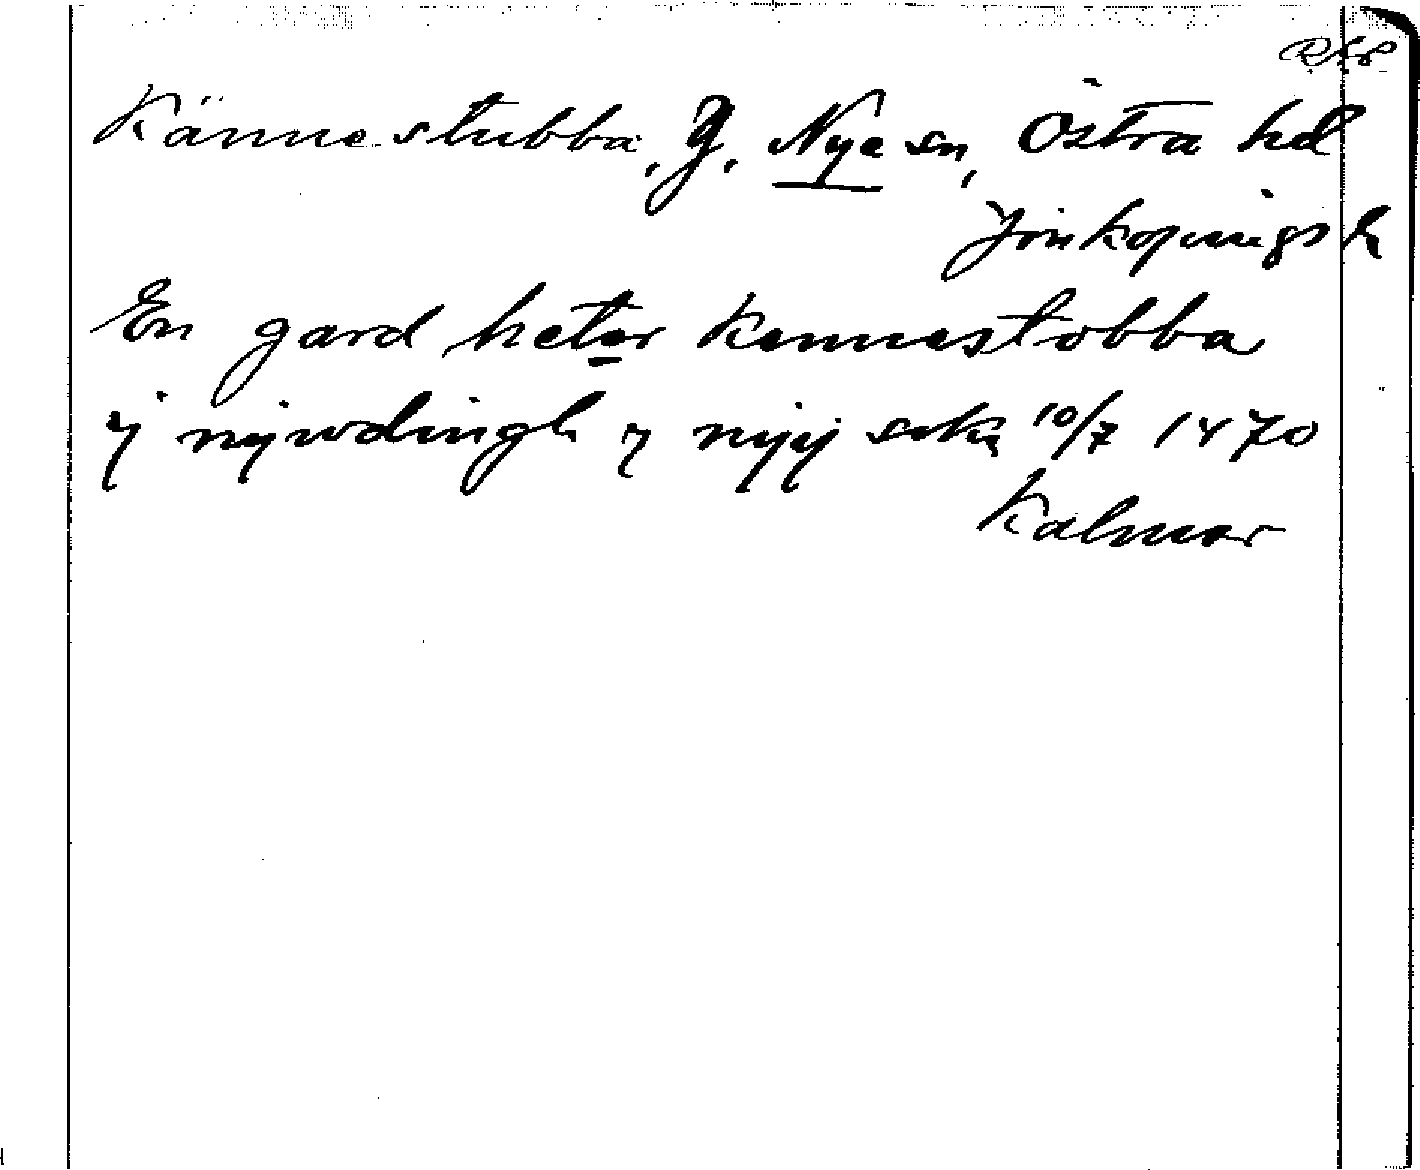 RAP
Kännestubba, g. Nye sn, Östra hd
Jönköpings l.
En gard heter Kennestobba
ÿ nÿwdingh ÿ nyÿ sokn 10/7 1470
Kalmar